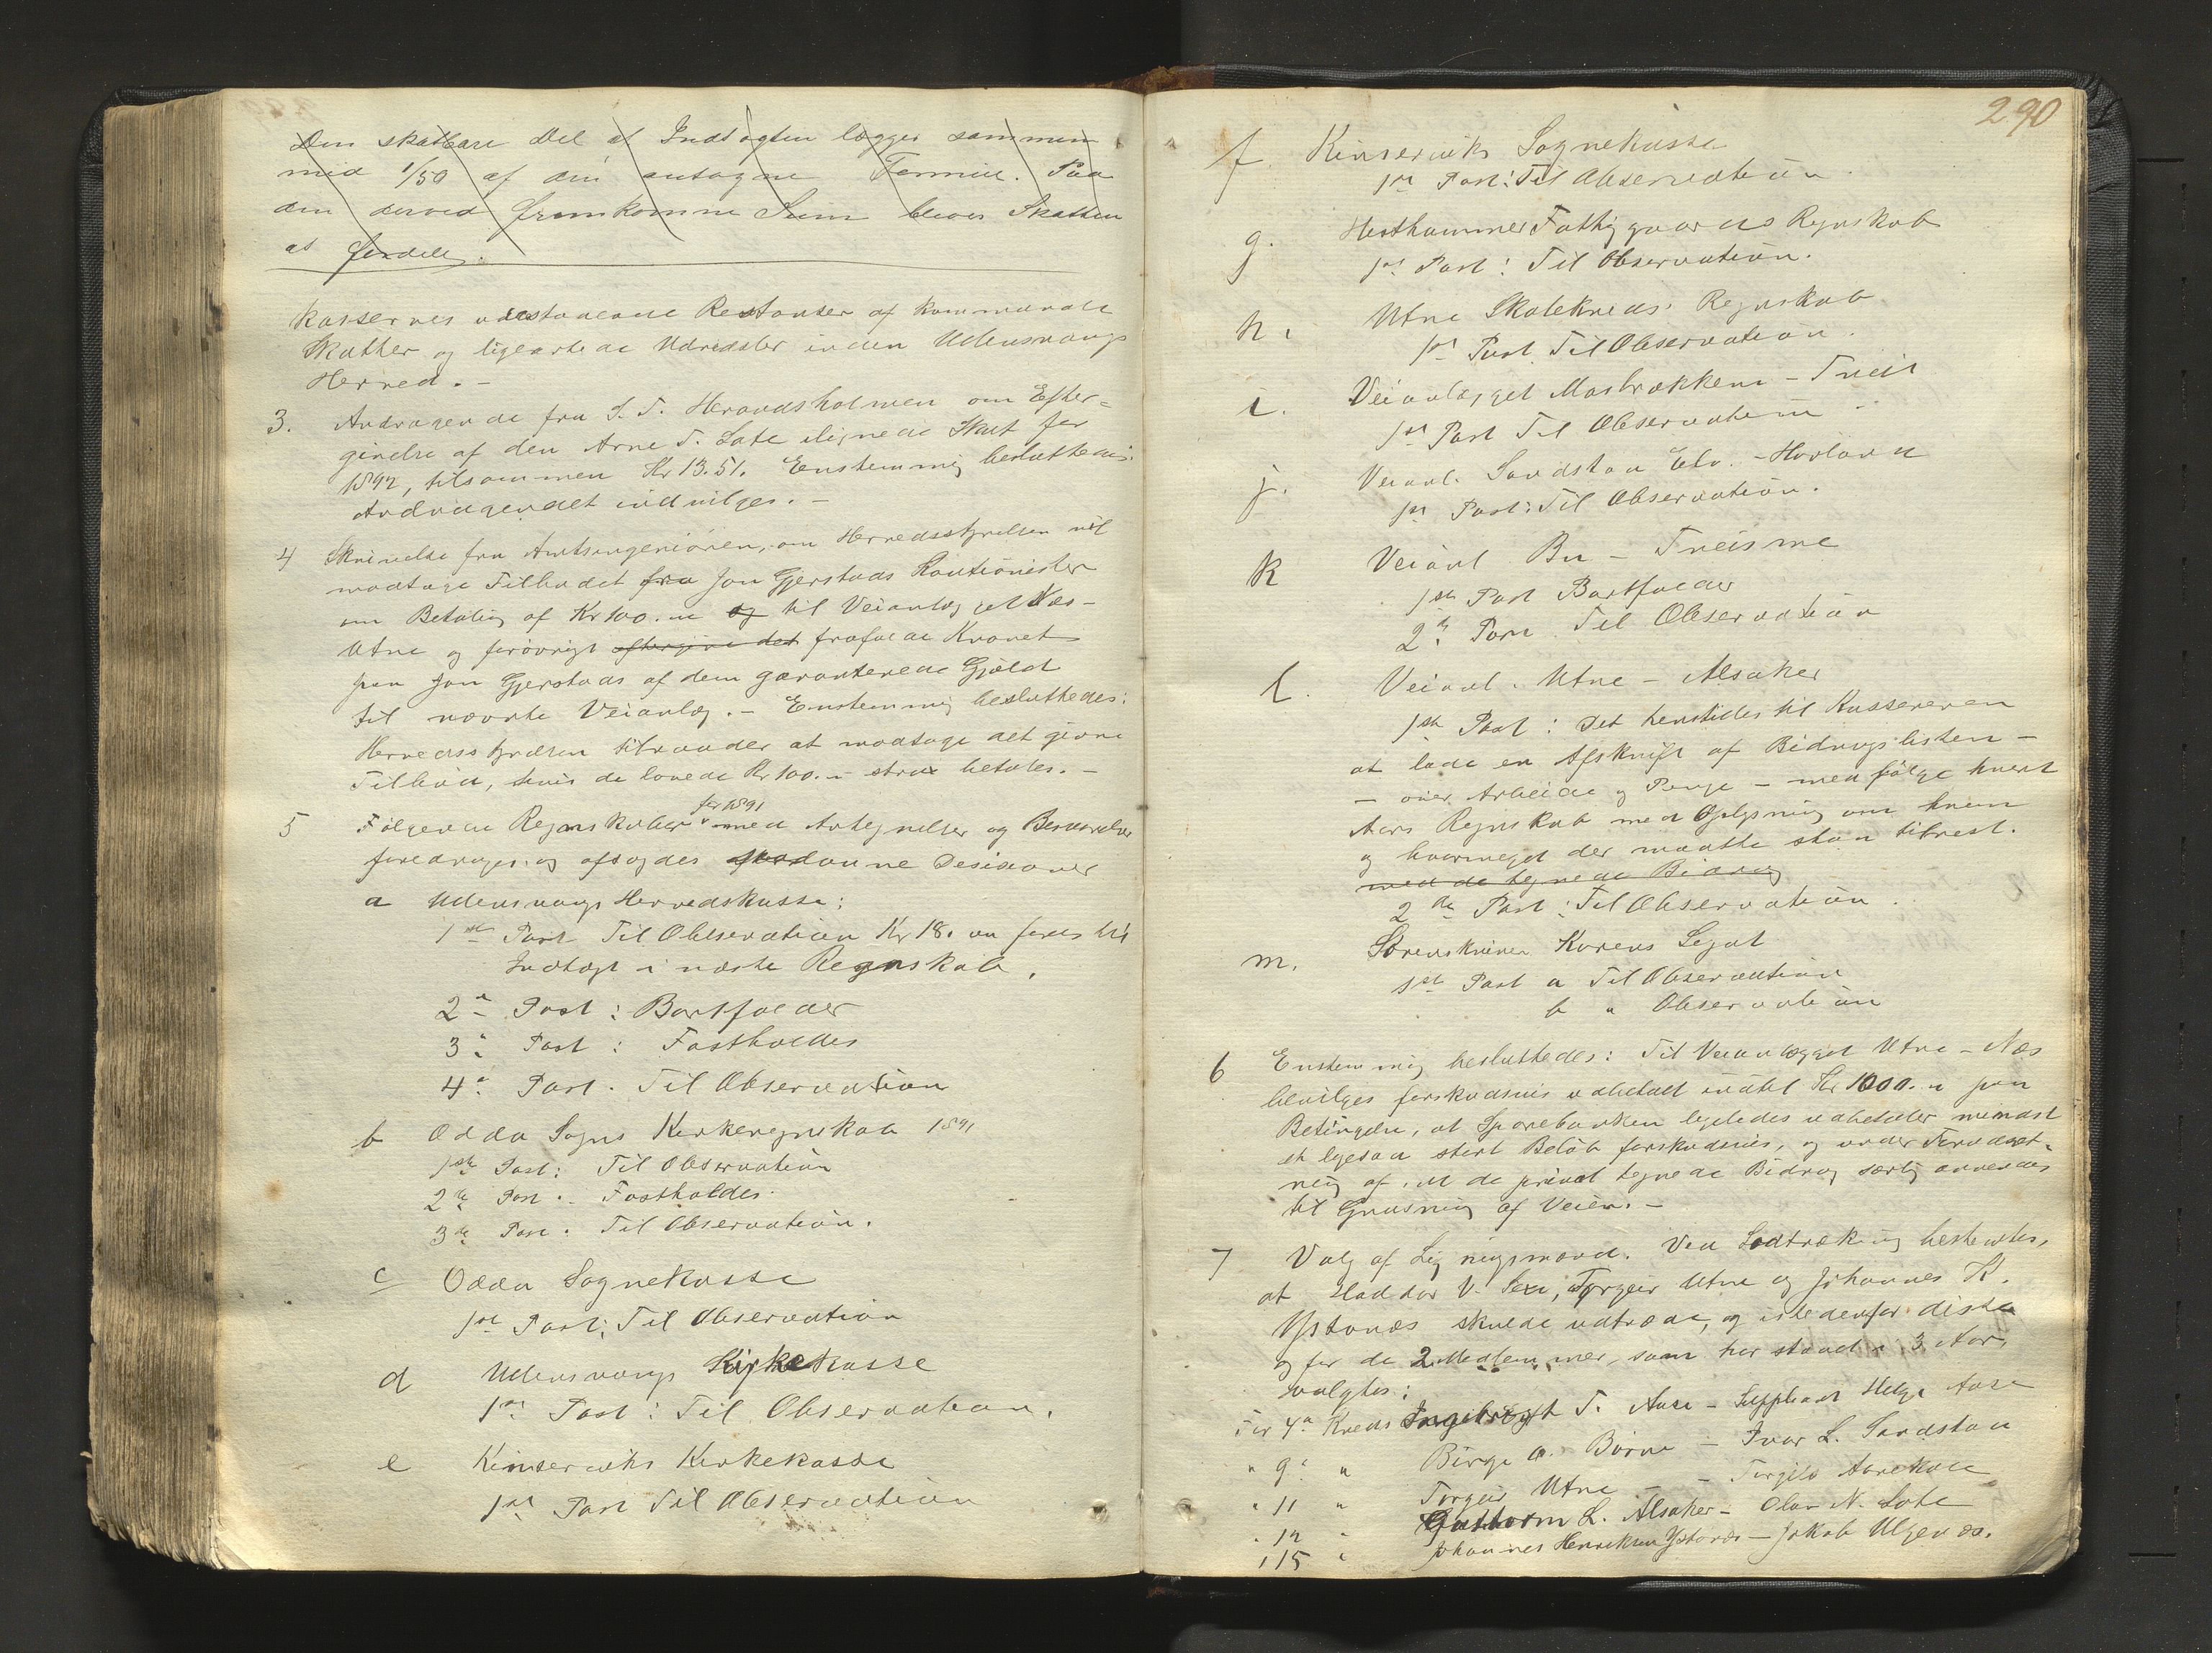 Den skatbare Del af Indtægten lægges sammen
med 1/50 af den antagne Formue. Paa
den derved fremkomne Sum bliver Skatten
at fordele.
kassernes udestaaende Restanser af kommunale
Skatter og ligeartede Udredsler inden Udensvangs
Herred. -
3. Andragende fra S. T. Herandsholmen om Efter-
givelse af den Arne T. Lote ilignede Skat for
1892, tilsammen Kr 13.51. Enstemmig besluttedes:
Andragendet indvilges. -
4 Skrivelse fra Amtsingeniøren, om Herredsstyrelsen vil
modtage Tilbudet fra Jon Gjerstads Kautionister
om Betaling af Kr 100. - og til Veianlægget Næs -
Utne og forøvrigt eftergive det frafalde Kravet
paa Jon Gjerstads af dem garanterede Gjæld
til nævnte Veianlæg. - Enstemmig besluttedes:
Herredsstyrelsen tilraader at modtage det givne
Tilbud, hvis de lovede Kr 100. - strax betales. -
5 Følgende Regnskaber for 1891 med Antegnelser og Besvarelser
foredroges og afsagdes saadanne Desisioner
a Udensvangs Herredskasse:
1ste Post Til Observation Kr 18. - føres til
Indtægt i næste Regnskab.
2den Post: Bortfalder
3de Post: Fastholdes
4de Post. Til Observation
b Odda Sogns Kirkeregnskab 1891
1ste Post: Til Observation
2den Post. Fastholdes.
3de Post. Til Observation.
c Odda Sognekasse
1ste Post: Til Observation
d Udensvangs Kirkekasse
1ste Post: Til Observation.
e Kinserviks Kirkekasse
1ste Post Til Observation
290
f. Kinserviks Sognekasse
1ste Post: Til Observation.
g. Hesthammer Fattiggaards Regnskab
1ste Post: Til Observation.
h. Utne Skolekreds Regnskab
1ste Post Til Observation.
i. Veianlægget Maabrækkene - Treit
1ste Post Til Observation
j. Veianl. Sandstaa Elv. - Havland
1ste Post: Til Observation.
k Veianl Bu - Treisme
1ste Post Bortfalder
2den Post Til Observation
l. Veianl. Utne - Alsaker
1ste Post: Det henstilles til Kassereren
at lade en Afskrift af Bidragslisten -
- over Arbeide og Penge - medfølge hvert
Aars Regnskab med Oplysning om hvem
og hvormeget der maatte staa tilrest.
med de tegnede Bidrag
2den Post: Til Observation.
m. Sorenskriver Korens Legat
1ste Post a Til Observation
b " Observation
6 Enstemmig besluttedes: Til Veianlægget Utne - Næs
bevilges forskudsvis udbetalt indtil Kr 1000. - paa
Betingelse, at Sparebanken ligeledes udbetaler mindst
et ligesaa stort Beløb forskudsvis, og under Forudsæt-
ning af, at de privat tegnede Bidrag særlig anvendes
til Grusning af Veien. -
7 Valg af Ligningsmænd. Ved Lodtrækning bestemtes,
at Haldor V. Sexe, Torgeir Utne og Johannes H.
Ystanæs skulde udtræde, og istedenfor disse
og for de 2 Medlemmer, som har staaet i 3 Aar,
valgtes:
For 4de Kreds Ingebrigt T. Aase - Suppleant Helge Aase
" 9de " Børge O. Børve - Ivar L. Sandstaa
" 11 " Torgeir Utne - Torgils Aarekoll
" 12 " Guttorm L. Alsaker - Olav N. Lote
" 15 " Johannes Henriksen Ystanæs - Jakob Ulgenæs.